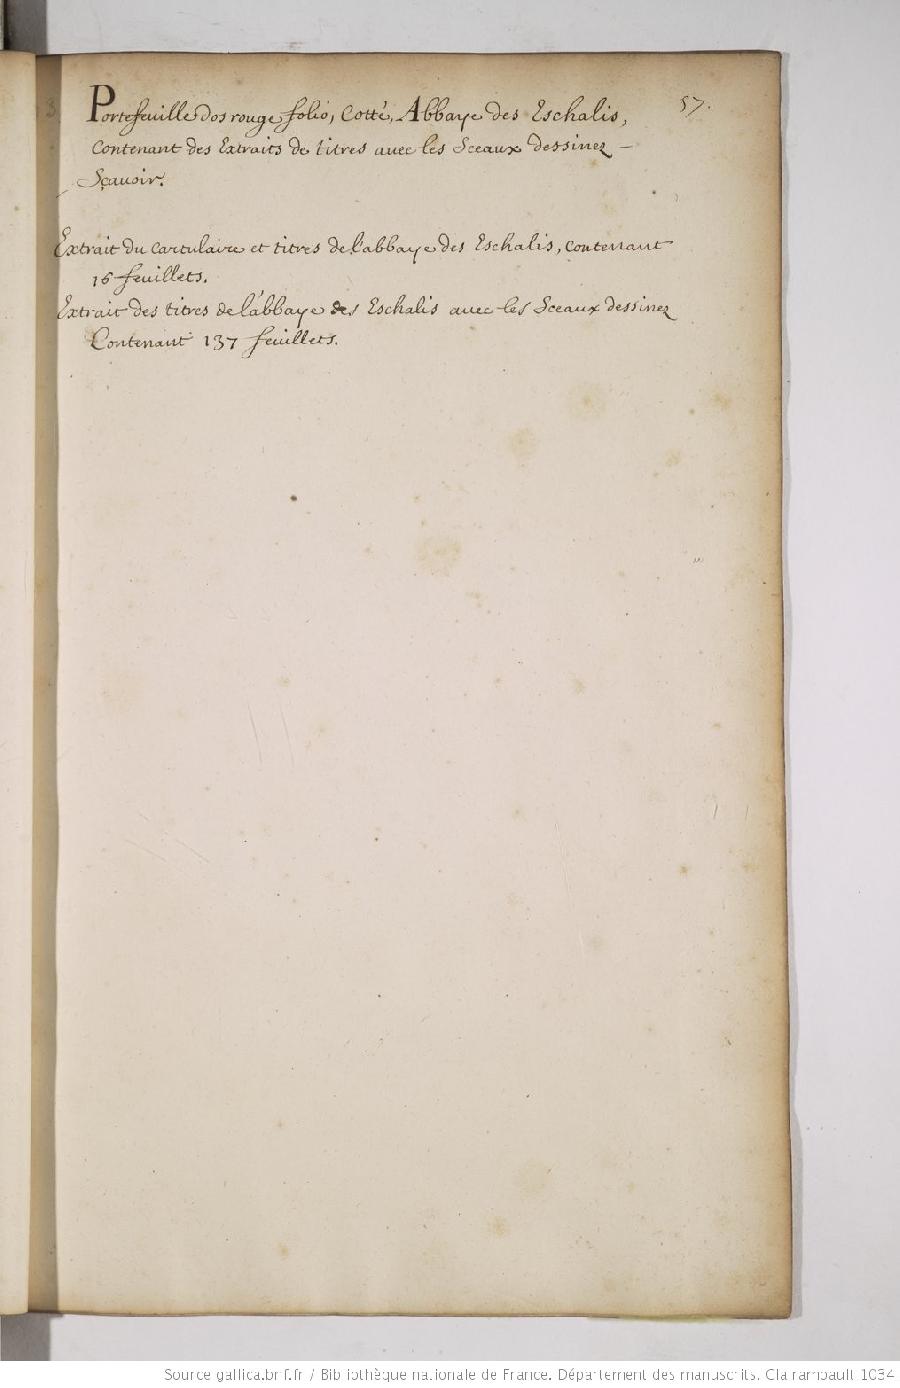 57.
Portefeuille dos rouge folio, Cotté, Abbaye des Eschalis,
Contenant des Extraits de titres auec les Sceaux dessinez –
Sçauoir.
Extrait du cartulaire et titres de l'abbaye des Eschalis, contenant
16 feuillets.
Extrait des titres de l'abbaye des Eschalis auec les Sceaux dessinez
Contenant 137 feuillets.
Source gallica.bnf.fr / Bibliothèque nationale de France. Département des manuscrits. Clairambault 1034